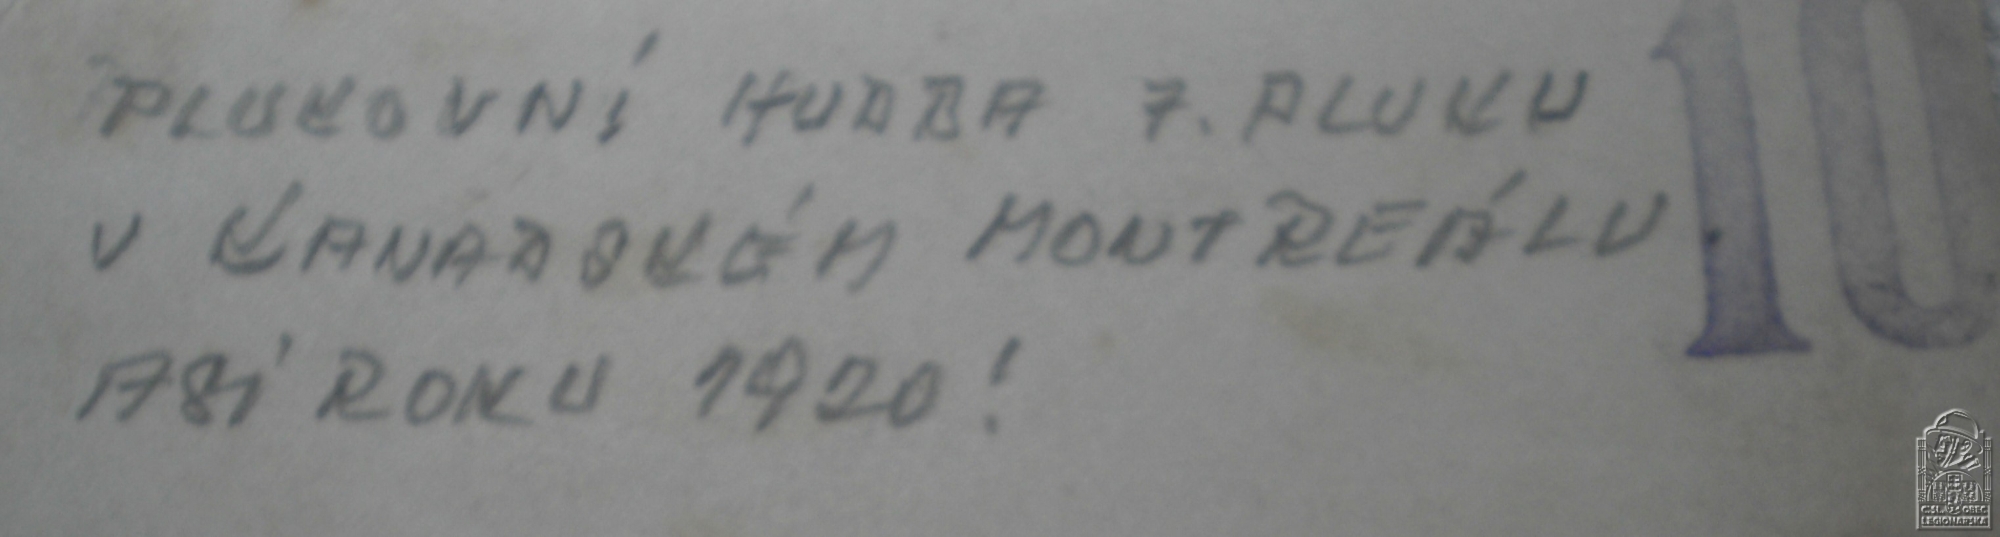 PLUKOVNÍ HUDBA 7. PLUKU
V KANADSKÉM MONTREÁLU
ASI ROKU 1920!
10
ČSL. OBEC
LEGIONÁŘSKÁ